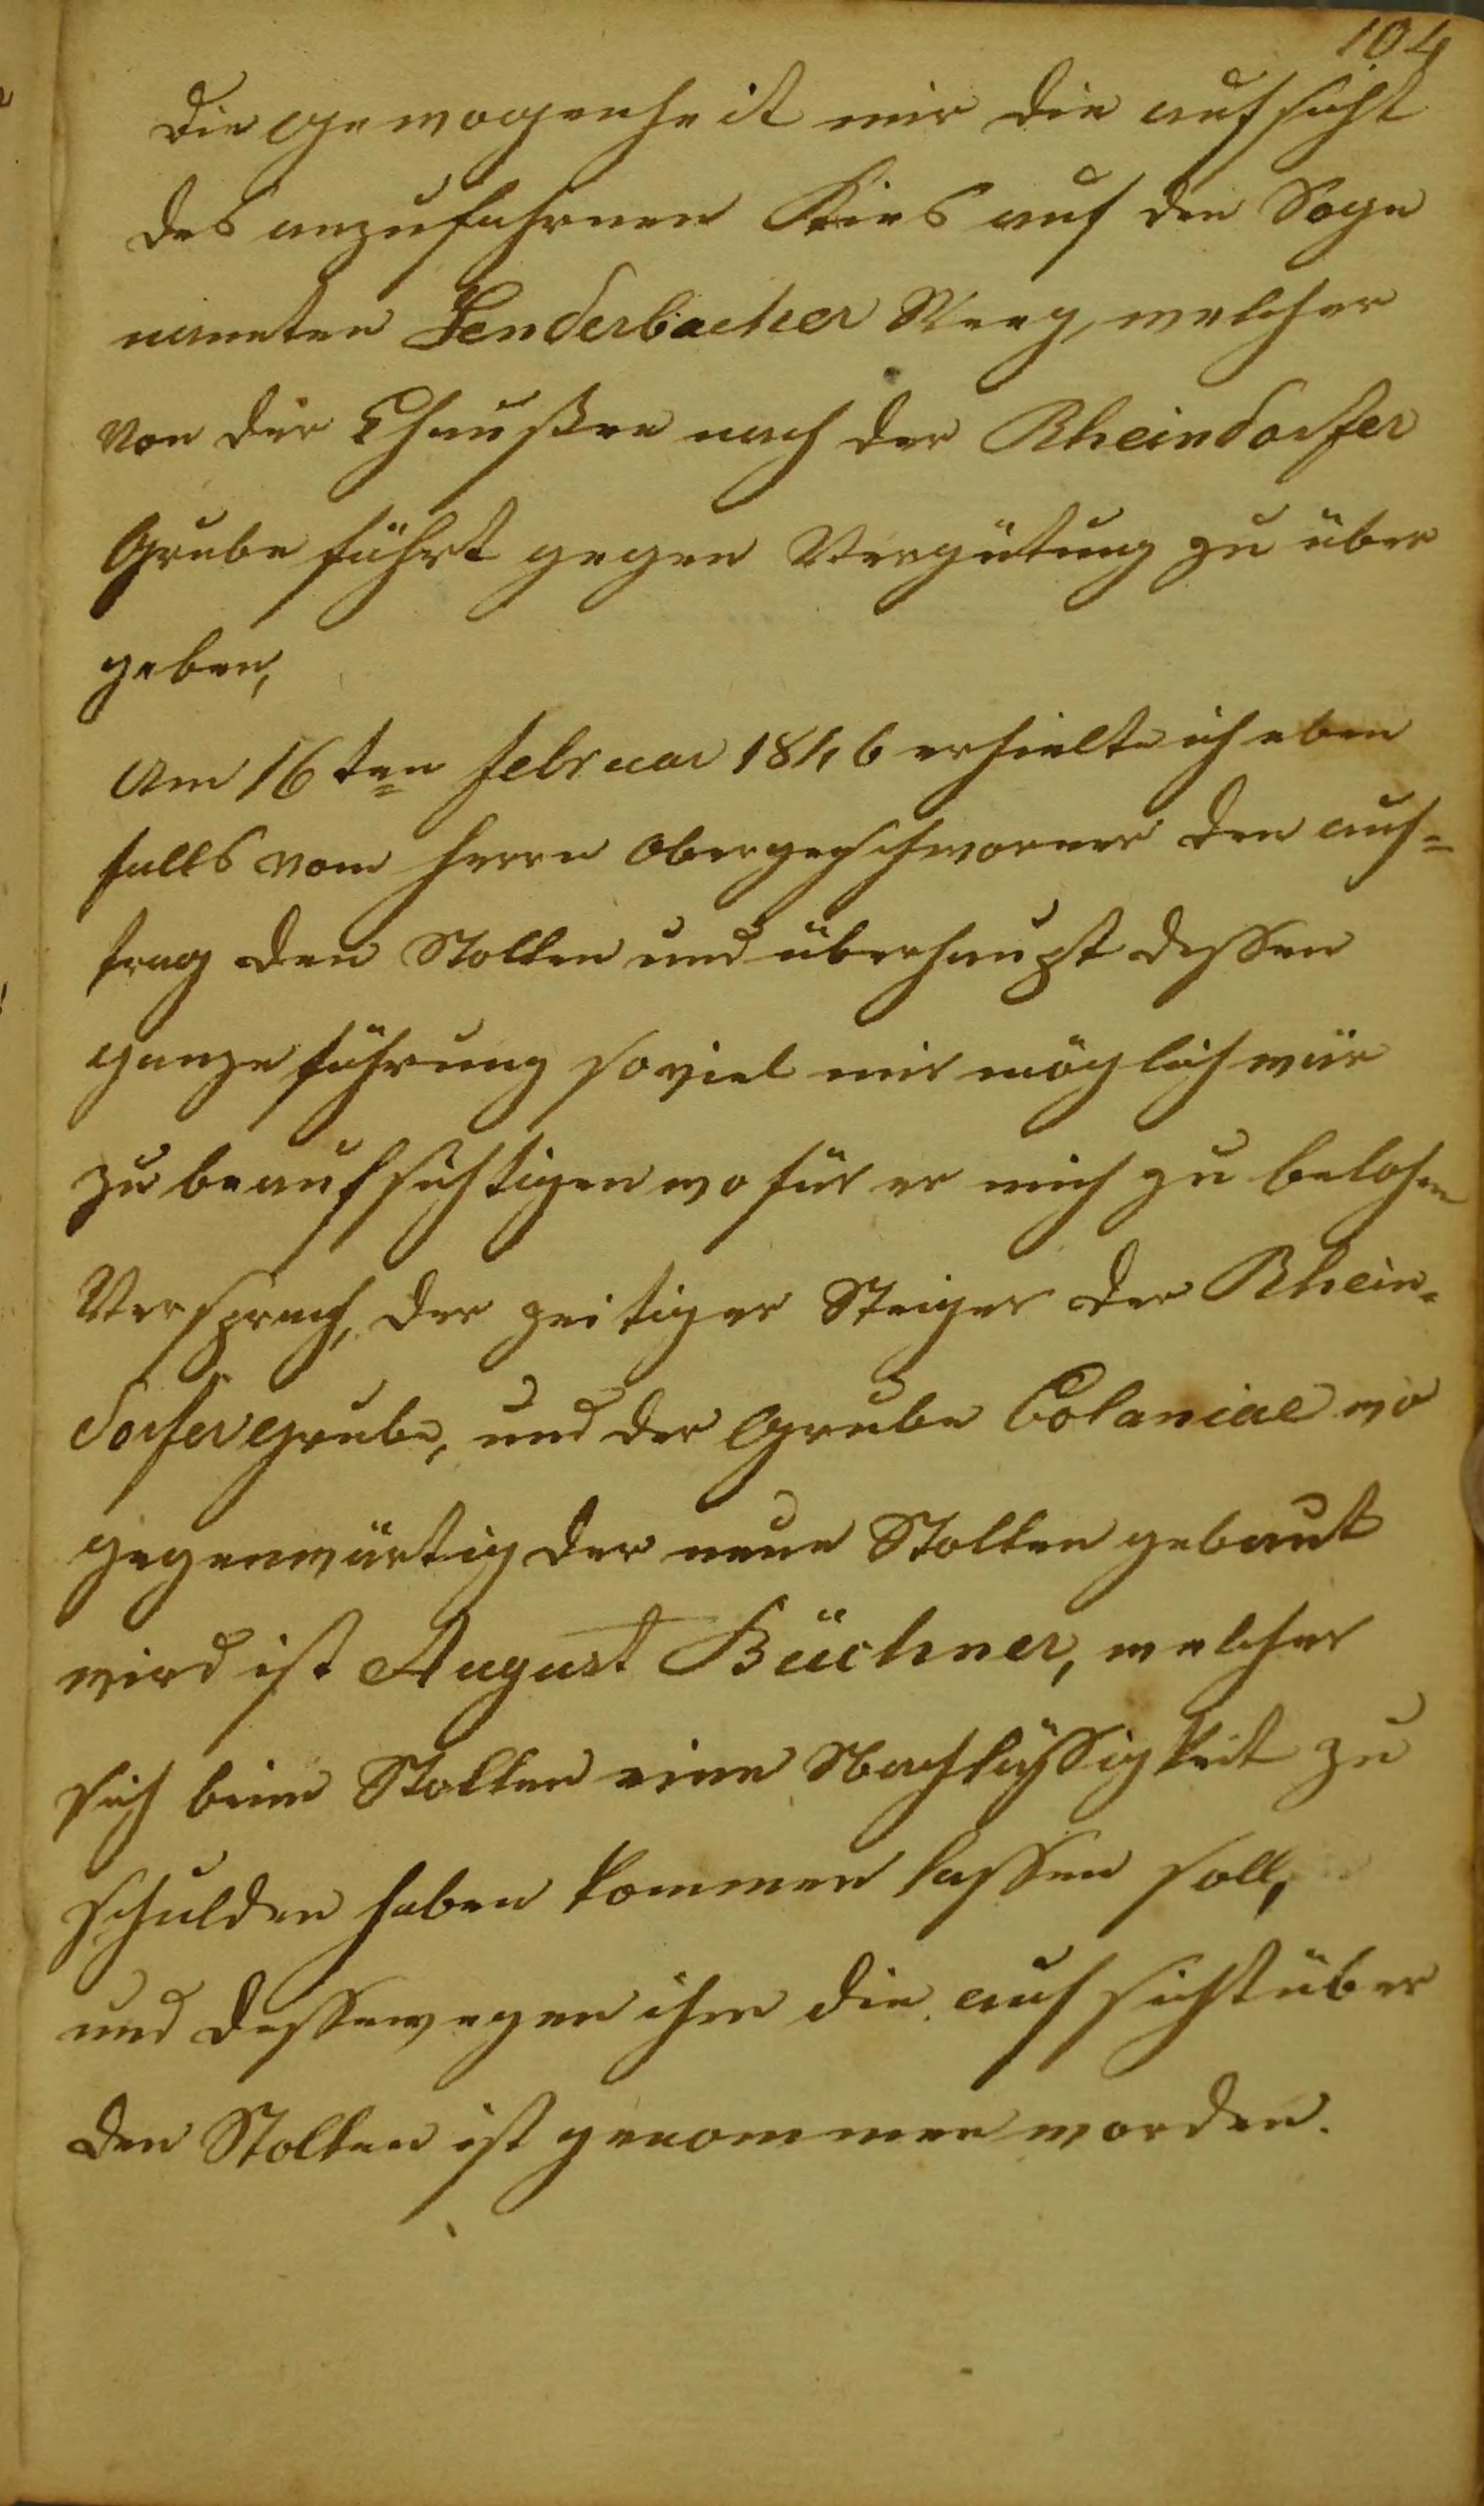 104
Die gewogenheit mir die aufsicht
des anzufahrenen Kies auf den Soge
nannten Lenderbacher Weeg, welcher
von der Chaußee nach der Rheindorfer
Grube führt gegen Vergütung zu über
geben,
Am 16ten Februar 1846 erhielte ich eben
falls vom Herrn Obergeschworner den auf=
trag den Stollen und überhaupt dessen
ganze führung so viel mir möglich wär
zu beaufsichtigen wo für er mich zu belohnen
Versprach, der zeitiger Steiger der Rhein-
dorfer grube, und der Grube Colaniae wo
gegenwärtig der neue Stollen gebaut
wird ist August Büchner, welcher
sich beim Stollen eine Nachläßigkeit zu
schulden haben kommen lassen soll,
und dessewegen ihm die aufsicht über
den Stollen ist genommen worden.